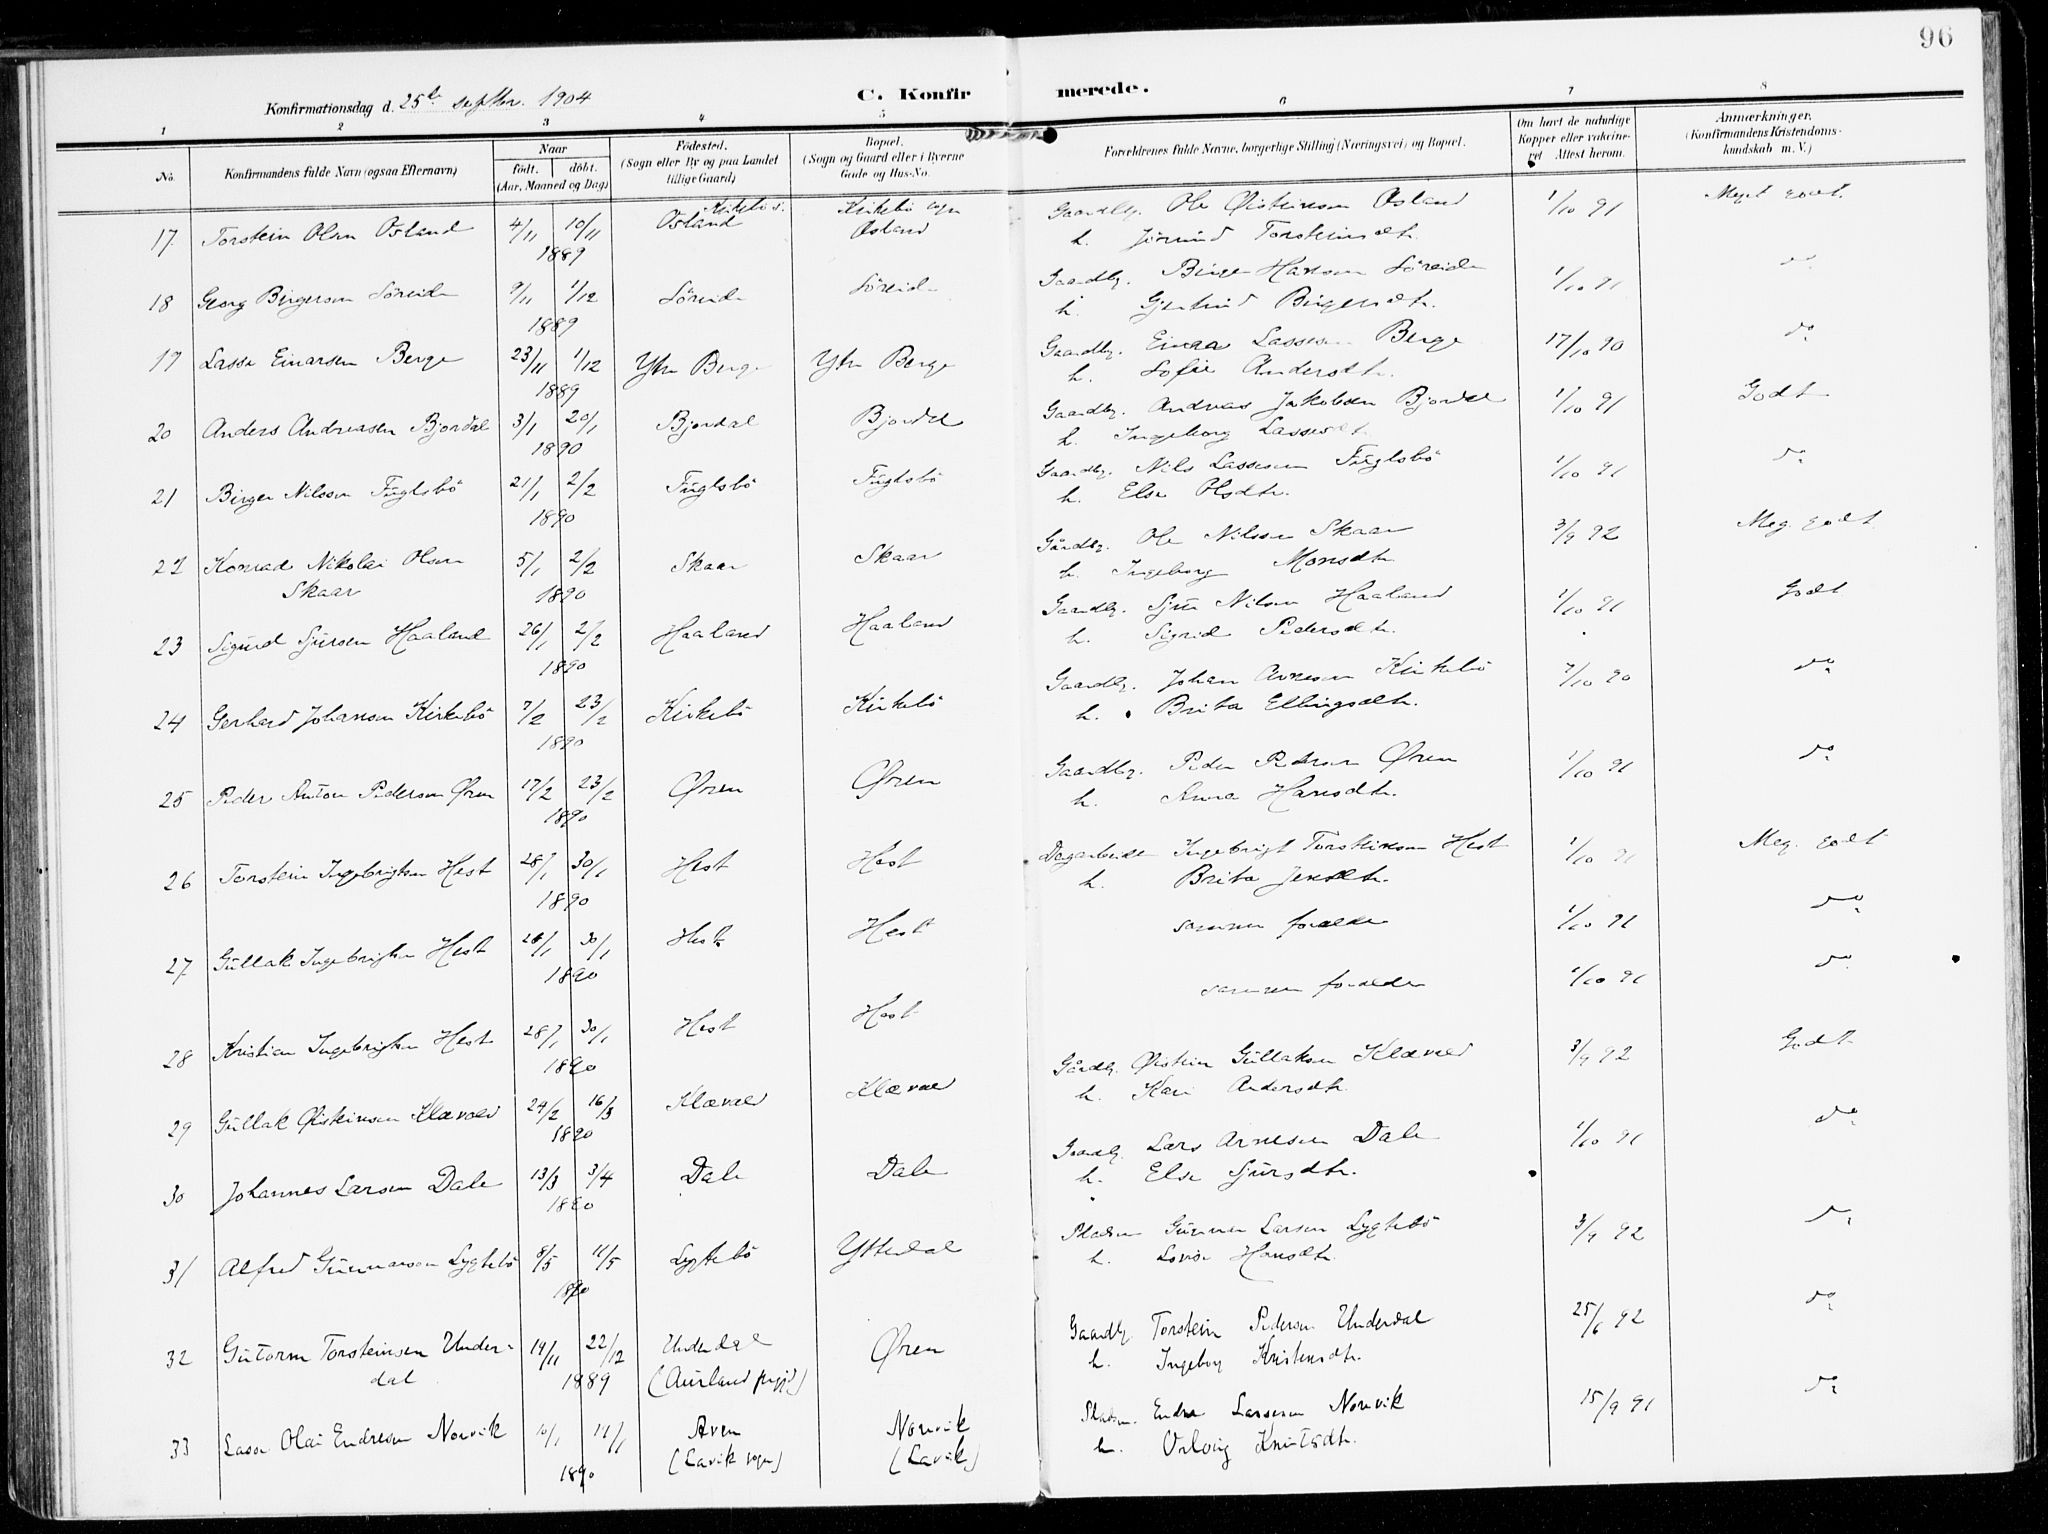 96
Konfirmationsdag d. 25de septbr. 1904 C. Konfirmerede.
1 2 3 4 5 6 7 8
No. Konfirmandens fulde Navn (ogsaa Efternavn) Naar født. døbt. (Aar, Maaned og Dag) Fødested. (Sogn eller By og paa Landet tillige Gaard) Bopæl. (Sogn og Gaard eller i Byerne Gade og Hus-No. Forældrenes fulde Navne, borgerlige Stilling (Næringsvei) og Bopæl. Om havt de naturlige Kopper eller vaccineret Attest herom. Anmærkninger. (Konfirmandens Kristendomskundskab m. V.)
17. Torstein Olsen Østland 4/11 10/11 1889 Kirkebø s. Østland Kirkebø sogn Østland Gaardbr. Ole Øisteinsen Østland 1/10 91 Meget godt.
h. Jorund Torsteinsdtr.
18 Georg Birgersen Søreide 9/11 1/12 1889 Søreide Søreide Gaardbr. Birger Hansen Søreide 1/10 91 do
h. Gjertrud Birgersdtr.
19 Lasse Einarsen Berge 23/11 1/12 1889 Ytre Berge Ytre Berge Gaardbr. Einar Lassesen Berge 17/10 90 do
h. Sofie Andersdtr.
20 Anders Andreasen Bjordal 3/1 20/1 1890 Bjordal Bjordal Gaardbr. Andreas Jakobsen Bjordal 1/10 91 Godt
h. Ingeborg Lassesdtr
21 Birger Nilssen Fuglsbø 21/1 2/2 1890 Fuglsbø Fuglsbø Gaardbr. Nils Lassesen Fuglsbø 1/10 91 do
h. Else Olsdtr.
22 Konrad Nikolai Olsen Skaar 5/1 2/2 1890 Skaar Skaar Gårdbr. Ole Nilssen Skaar 3/9 92 Meg. godt
h. Ingeborg Monsdtr.
23 Sigurd Sjursen Haaland 26/1 2/2 1890 Haaland Haaland Gaardbr. Sjur Nilsen Haaland 1/10 91 Godt
h. Sigrid Pedersdtr.
24 Gerhard Johansen Kirkebø 7/2 23/2 1890 Kirkebø Kirkebø Gaardbr. Johan Arnesen Kirkebø 7/10 90 do
h. Brita Ellingsdtr.
25 Peder Anton Pedersen Øren 17/2 23/2 1890 Øren Øren Gaardbr. Peder Pedersen Øren 1/10 91 do
h. Anna Hansdtr.
26 Torstein Ingebrigtsen Hest 28/1 30/1 1890 Hest Hest Dagarbeider Ingebrigt Torsteinsen Hest 1/10 91 Meg. godt
h. Brita Jensdtr.
27 Gullak Ingebrigtsen Hest 28/1 30/1 1890 Hest Hest samme forældre 1/10 91 do
28 Kristian Ingebrigtsen Hest 28/1 30/1 1890 Hest Hest samme forældre 1/10 91 do
29 Gullak Øisteinsen Klævold 24/2 16/3 1890 Klævold Klævold Gårdbr. Øistein Gullaksen Klævold 3/9 92 Godt
h. Kari Andersdtr.
30 Johannes Larsen Dale 13/3 3/4 1890 Dale Dale Gaardbr. Lars Arnesen Dale 1/10 91 do
h. Else Sjursdtr.
31 Alfred Gunnarsen Lygtebø 8/5 11/5 1890 Lygtebø Yttredal Pladsm Gunnar Larsen Lygtebø 3/9 92 do
h. Lovise Hansdtr.
32 Gutorm Torsteinsen Underdal 19/11 22/12 1889 Underdal (Aurland prgjd) Øren Gaardbr. Torstein Pedersen Underdal 25/6 92 do
h. Ingeborg Kristensdtr.
33 Lasse Olai Endresen Norvik 10/1 19/1 1890 Aven (Lavik sogn) Norevik (Lavik) Pladsm. Endre Lassesen Norevik 15/9 91 do
h. Knutsdtr.